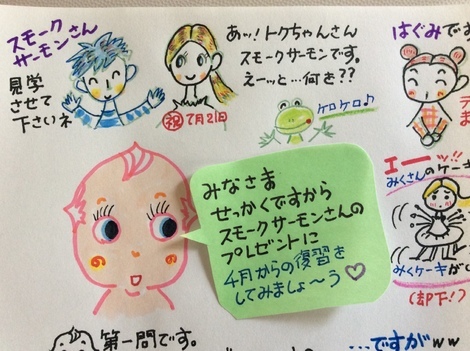 スモーク
サーモンさん
見学
させて
下さいネ
㊗7月2日
あッ!トクちゃんさん
スモークサーモンです。
えーッと…何き??
ケロケロ♪
はぐみです
みなさま
せっかくですから
スモークサーモンさんの
プレゼントに
4月からの復習を
してみましょ〜う♡
エーッ
みくさんのケーキ
みくケーキが
(却下!)
第一問です。
…ですがww